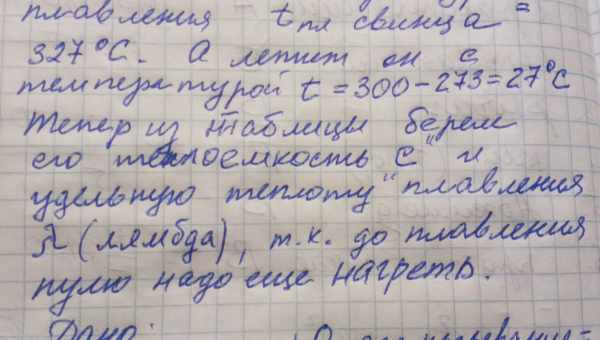 плавления - tпл свинца =
327°C. А летит он с
температурой t = 300 - 273 = 27°C
Тепер из таблицы берем
его теплоемкость "с" и
удельную теплоту плавления
λ (лямбда), т.к. до плавления
пулю надо еще нагреть.
Дано: